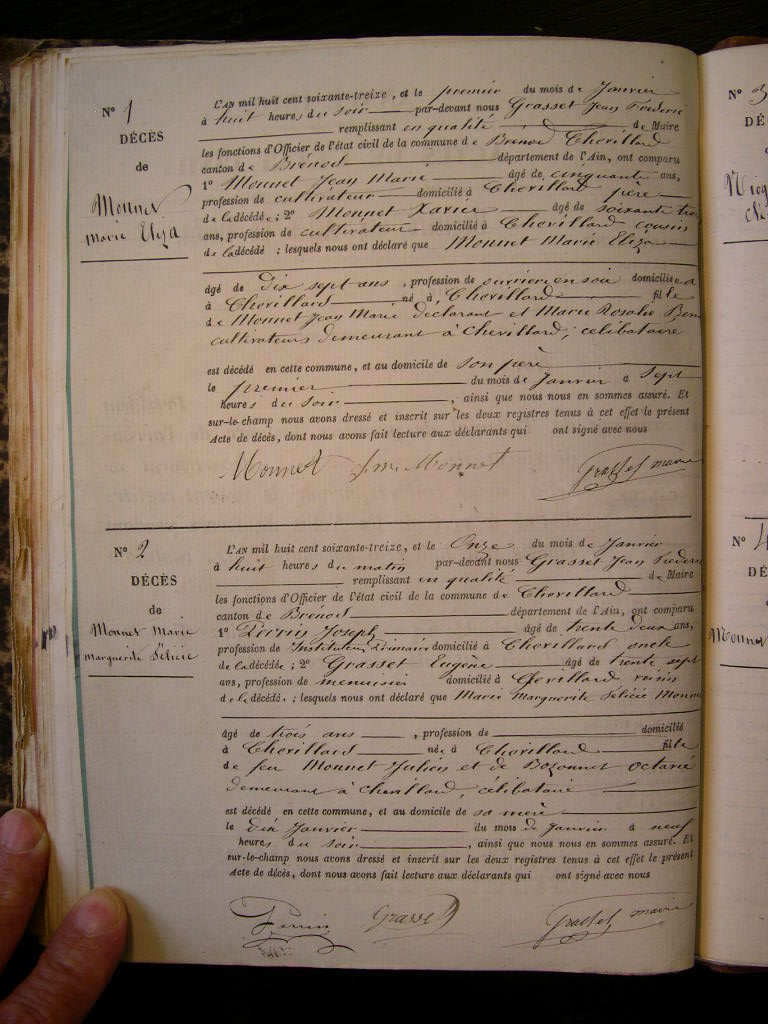 N° 1
DÉCÈS
de
Monnet
Marie Eliza
L'AN mil huit cent soixante-treize, et le premier du mois de Janvier
à huit heures du soir par-devant nous Grasset Jean Frederic
remplissant en qualité de Maire
les fonctions d'Officier de l'état civil de la commune de Brénod Chevillard
canton de Brénod département de l'Ain, ont comparu
1° Monnet Jean Marie âgé de cinquante ans,
profession de cultivateur domicilié à Chevillard père
de la décédée; 2° Monnet Xavier âgé de soixante trois
ans, profession de cultivateur domicilié à Chevillard cousin
de la décédé; lesquels nous ont déclaré que Monnet Marie Eliza
âgé de dix sept ans, profession de ouvrière en soie domiciliée
à Chevillard né à Chevillard fille
de Monnet Jean Marie déclarant et Marie Rosalie
cultivateurs demeurant à chevillard, célibataire
est décédé en cette commune, et au domicile de son père
le premier du mois de Janvier à Sept
heures du Soir, ainsi que nous nous en sommes assuré. Et
sur-le-champ nous avons dressé et inscrit sur les deux registres tenus à cet effet le présent
Acte de décès, dont nous avons fait lecture aux déclarants qui ont signé avec nous
Monnet Monnet Grasset maire
N° 2
DÉCÈS
de
Monnet Marie
marguerite Félicie
L'AN mil huit cent soixante-treize, et le Onze du mois de Janvier
à huit heures du matin par-devant nous Grasset Jean Frederic
remplissant en qualité de Maire
les fonctions d'Officier de l'état civil de la commune de Chevillard
canton de Brénod département de l'Ain, ont comparu
1° Perrin Joseph âgé de trente deux ans,
profession de Instituteur Primaire domicilié à Chevillard oncle
de la décédée; 2° Grasset Eugène âgé de trente sept
ans, profession de menuisier domicilié à Chevillard voisin
de la décédé; lesquels nous ont déclaré que Marie Marguerite Félicie Monnet
âgé de trois ans, profession de domicilié
à Chevillard née à Chevillard fille
de feu Monnet Julien et de Bozonnet octavie
demeurant à chevillard, célibataire
est décédé en cette commune, et au domicile de sa mère
le Dix Janvier du mois de Janvier à neuf
heures du soir, ainsi que nous nous en sommes assuré. Et
sur-le-champ nous avons dressé et inscrit sur les deux registres tenus à cet effet le présent
Acte de décès, dont nous avons fait lecture aux déclarants qui ont signé avec nous
Perrin Grasset Grasset maire
N° 3
DÉ
N° 4
DÉ
Monnet